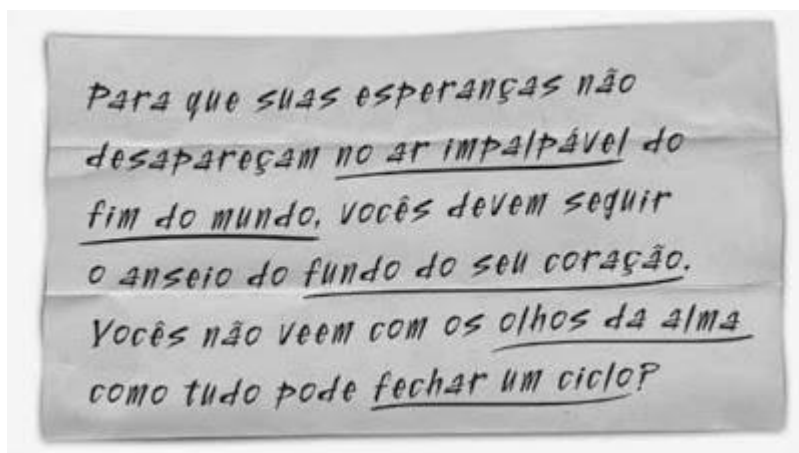 Para que suas esperanças não
desapareçam no ar impalpável do
fim do mundo, vocês devem seguir
o anseio do fundo do seu coração.
Vocês não veem com os olhos da alma
como tudo pode fechar um ciclo?